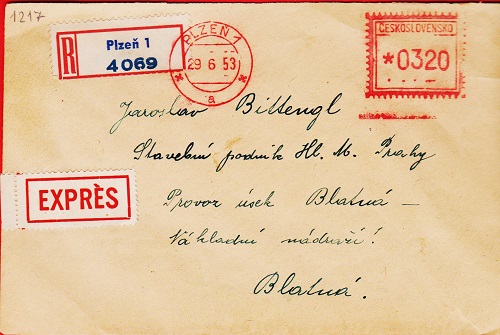 1217
R Plzeň 1
4069
PLZEŇ 1
29 6 53
a
ČESKOSLOVENSKO
*0320
Jaroslav Bittengl
Stavební podnik Hl. M. Prahy
EXPRÈS
Provoz úsek Blatná –
Nákladní nádraží!
Blatná.